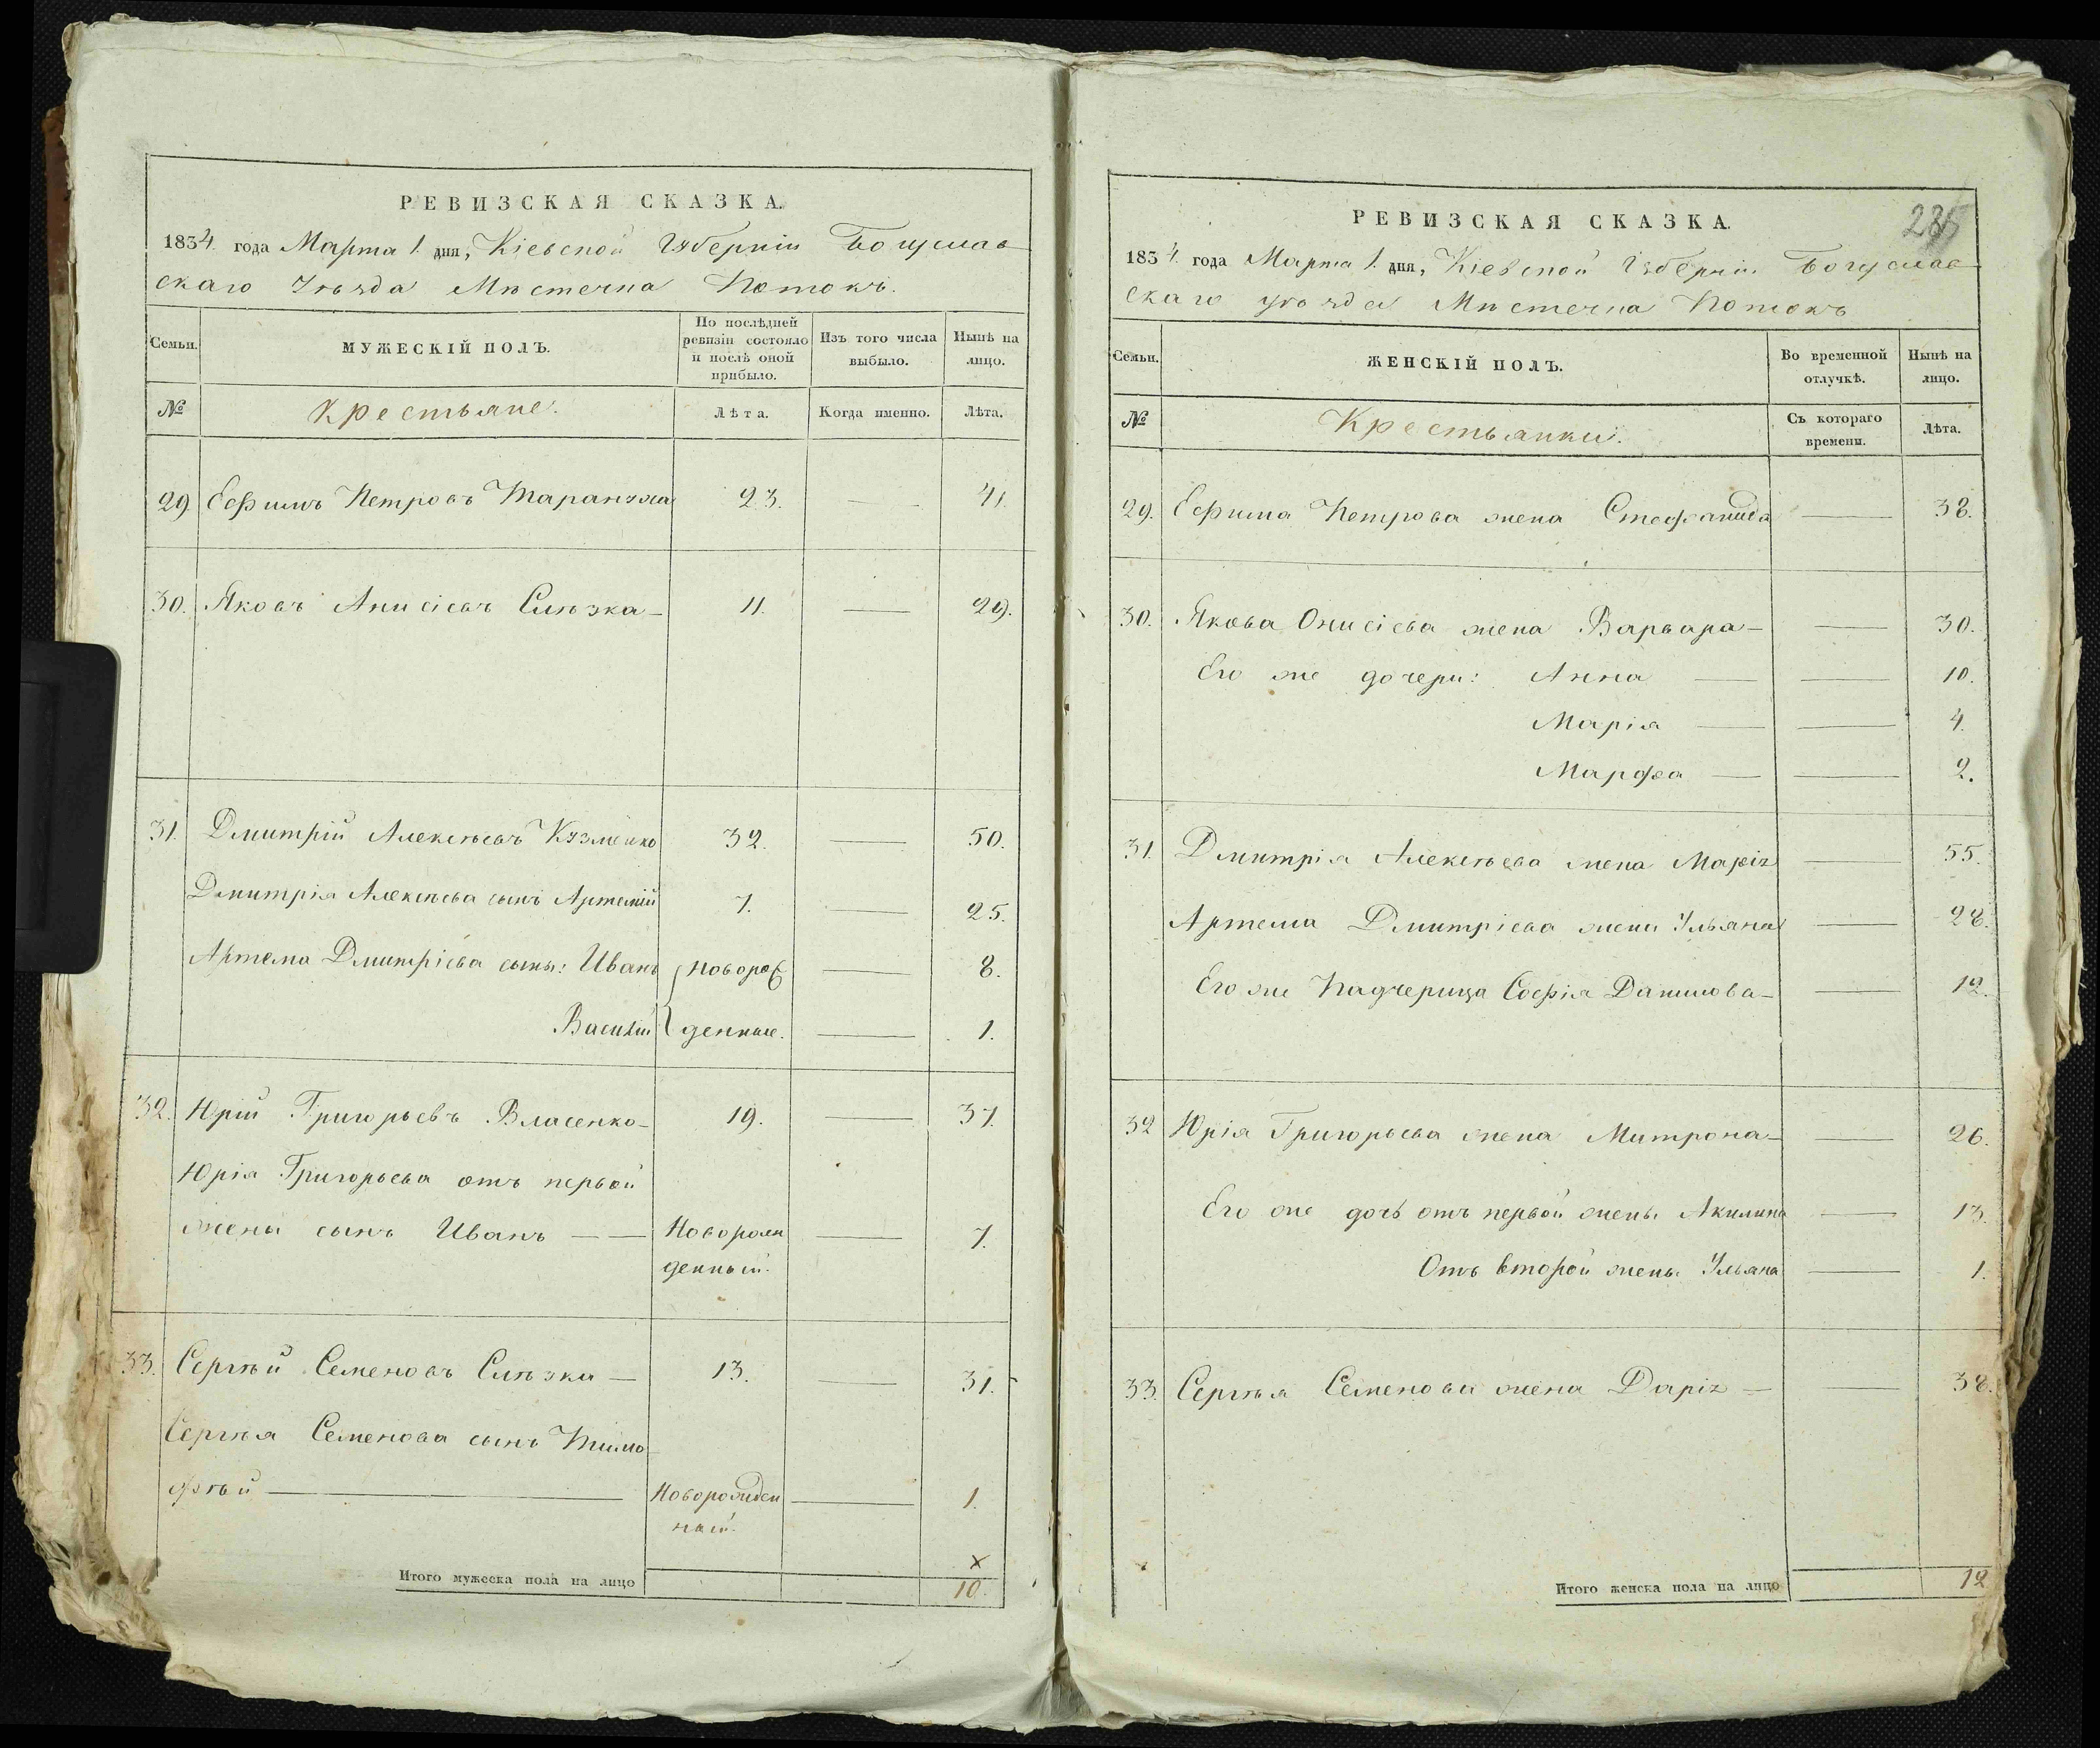 РЕВИЗСКАЯ СКАЗКА.
1834. года Марта 1. дня, Кіевской Губерніи Богуслав
скаго Уѣзда Мѣстечка Потокъ.
Семьи.
МУЖЕСКІЙ ПОЛЪ.
По послѣдней ревизіи состояло и послѣ оной прибыло.
Изъ того числа выбыло.
Нынѣ на лицо.
№
Крестьяне.
Лѣта.
Когда именно.
Лѣта.
29 Ефимъ Петровъ Тарануха 23. — 41.
30. Яковъ Анисіевъ Слѣзка — 11. — 29.
31. Дмитрій Алексѣевъ Кузменко 32. — 50.
Дмитрія Алексѣева сынъ Артемій 7. — 25.
Артема Дмитріева сыны: Иванъ Новорож — 8.
Василій денные. — 1.
32. Юрій Григорьевъ Власенко — 19. — 37.
Юрія Григорьева отъ первой
жены сынъ Иванъ — — Новорож — 7.
денный.
33. Сергѣй Семеновъ Слѣзка — 13. — 31.
Сергѣя Семенова сынъ Тимо
фѣй — Новорожден — 1.
ный.
х
Итого мужеска пола на лицо 10.
РЕВИЗСКАЯ СКАЗКА.
1834. года Марта 1. дня, Кіевской Губерніи Богуслав
скаго уѣзда Мѣстечка Потокъ
Семьи.
ЖЕНСКІЙ ПОЛЪ.
Во временной отлучкѣ.
Нынѣ на лицо.
№
Крестьянки.
Съ котораго времени.
Лѣта.
29. Ефима Петрова жена Стефанида — 38.
30. Якова Онисіева жена Варвара — — 30.
Его же дочери: Анна — — 10.
Марія — — 4.
Марфа — — 2.
31. Дмитрія Алексѣева жена Марія — 55.
Артема Дмитріева жена Ульяна — 28.
Его же Падчерица Софія Данилова — — 12.
32 Юрія Григорьева жена Митрона — — 26.
Его же дочь отъ первой жены Акилина — 13.
Отъ второй жены Ульяна — 1.
33. Сергѣя Семенова жена Дарія — — 38.
Итого женска пола на лицо 12